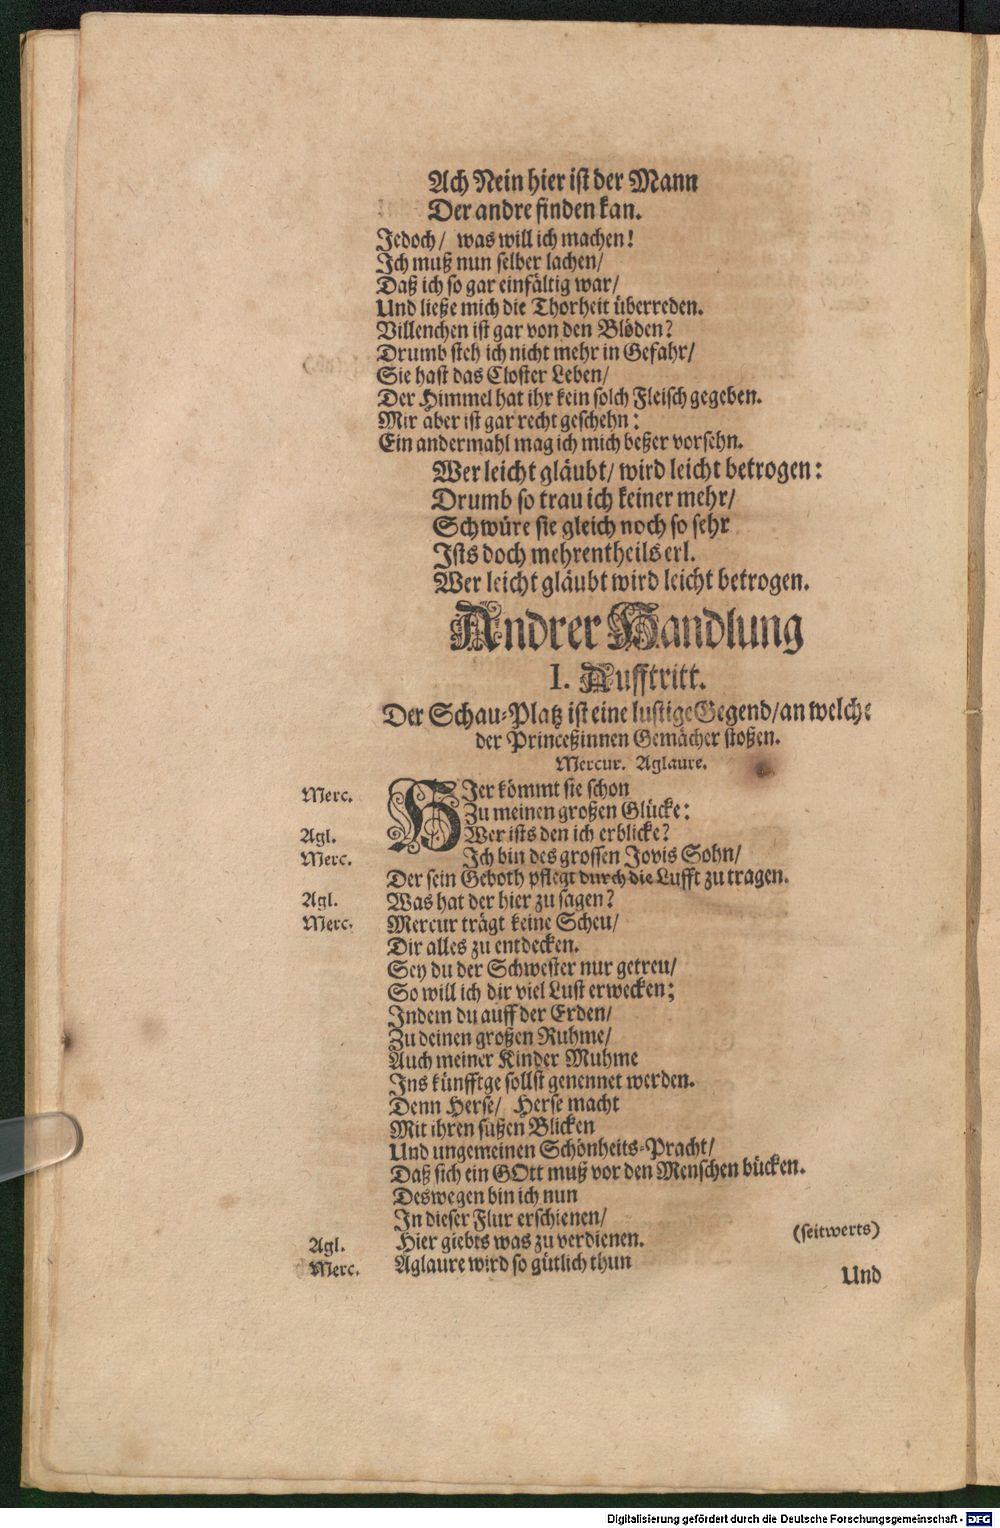 Ach Nein hier ist der Mann
Der andre finden kan.
Jedoch/ was will ich machen!
Ich muß nun selber lachen/
Daß ich so gar einfältig war/
Und ließe mich die Thorheit überreden.
Villenchen ist gar von den Blöden?
Drumb steh ich nicht mehr in Gefahr/
Sie hast das Closter Leben/
Der Himmel hat ihr kein solch Fleisch gegeben.
Mir aber ist gar recht geschehn:
Ein andermahl mag ich mich beßer vorsehn.
Wer leicht gläubt/ wird leicht betrogen:
Drumb so trau ich keiner mehr/
Schwüre sie gleich noch so sehr
Ists doch mehrentheils erl.
Wer leicht gläubt wird leicht betrogen.
Andrer Handlung
I. Aufftritt.
Der Schau-Platz ist eine lustige Gegend/an welche
der Princeßinnen Gemächer stoßen.
Mercur. Aglaure.
Merc. HJer kömmt sie schon
Zu meinen großen Glücke:
Agl. Wer ists den ich erblicke?
Merc. Ich bin des grossen Jovis Sohn/
Der sein Geboth pflegt durch die Lufft zu tragen.
Agl. Was hat der hier zu sagen?
Merc. Mercur trägt keine Scheu/
Dir alles zu entdecken.
Sey du der Schwester nur getreu/
So will ich dir viel Lust erwecken;
Indem du auff der Erden/
Zu deinen großen Ruhme/
Auch meiner Kinder Muhme
Ins künfftge sollst genennet werden.
Denn Herse/ Herse macht
Mit ihren süßen Blicken
Und ungemeinen Schönheits-Pracht/
Daß sich ein GOtt muß vor den Menschen bücken.
Deswegen bin ich nun
In dieser Flur erschienen/
Agl. Hier giebts was zu verdienen. (seitwerts)
Merc. Aglaure wird so gütlich thun
Und
Digitalisierung gefördert durch die Deutsche Forschungsgemeinschaft - DFG